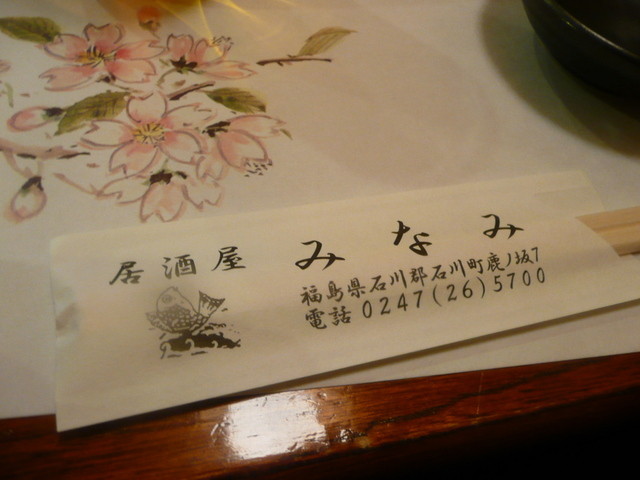 居酒屋 みなみ
福島県石川郡石川町鹿ノ坂7
電話 0247(26)5700